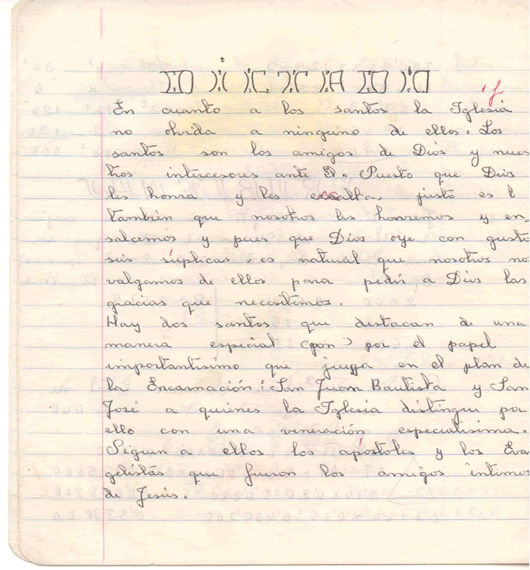 DICTADO
En cuanto a los santos la Iglesia
no olvida a ninguno de ellos. Los
santos son los amigos de Dios y nues
tros intercesores ante Él. Puesto que Dios
les honra y los exsalta, justo es
también que nosotros les honremos y en
salcemos y pues que Dios oye con gusto
sus súplicas es natural que nosotros no
valgamos de ellos para pedir a Dios las
gracias que necesitemos.
Hay dos santos que destacan de una
manera especial (pon) por el papel
importantísimo que juega en el plan de
la Encarnación: San Juan Bautista y San
José a quienes la Iglesia distingue por
ello con una veneración especialísima.
Siguen a ellos los apóstoles y los Eva
gelistas que fueron los amigos íntimos
de Jesús.